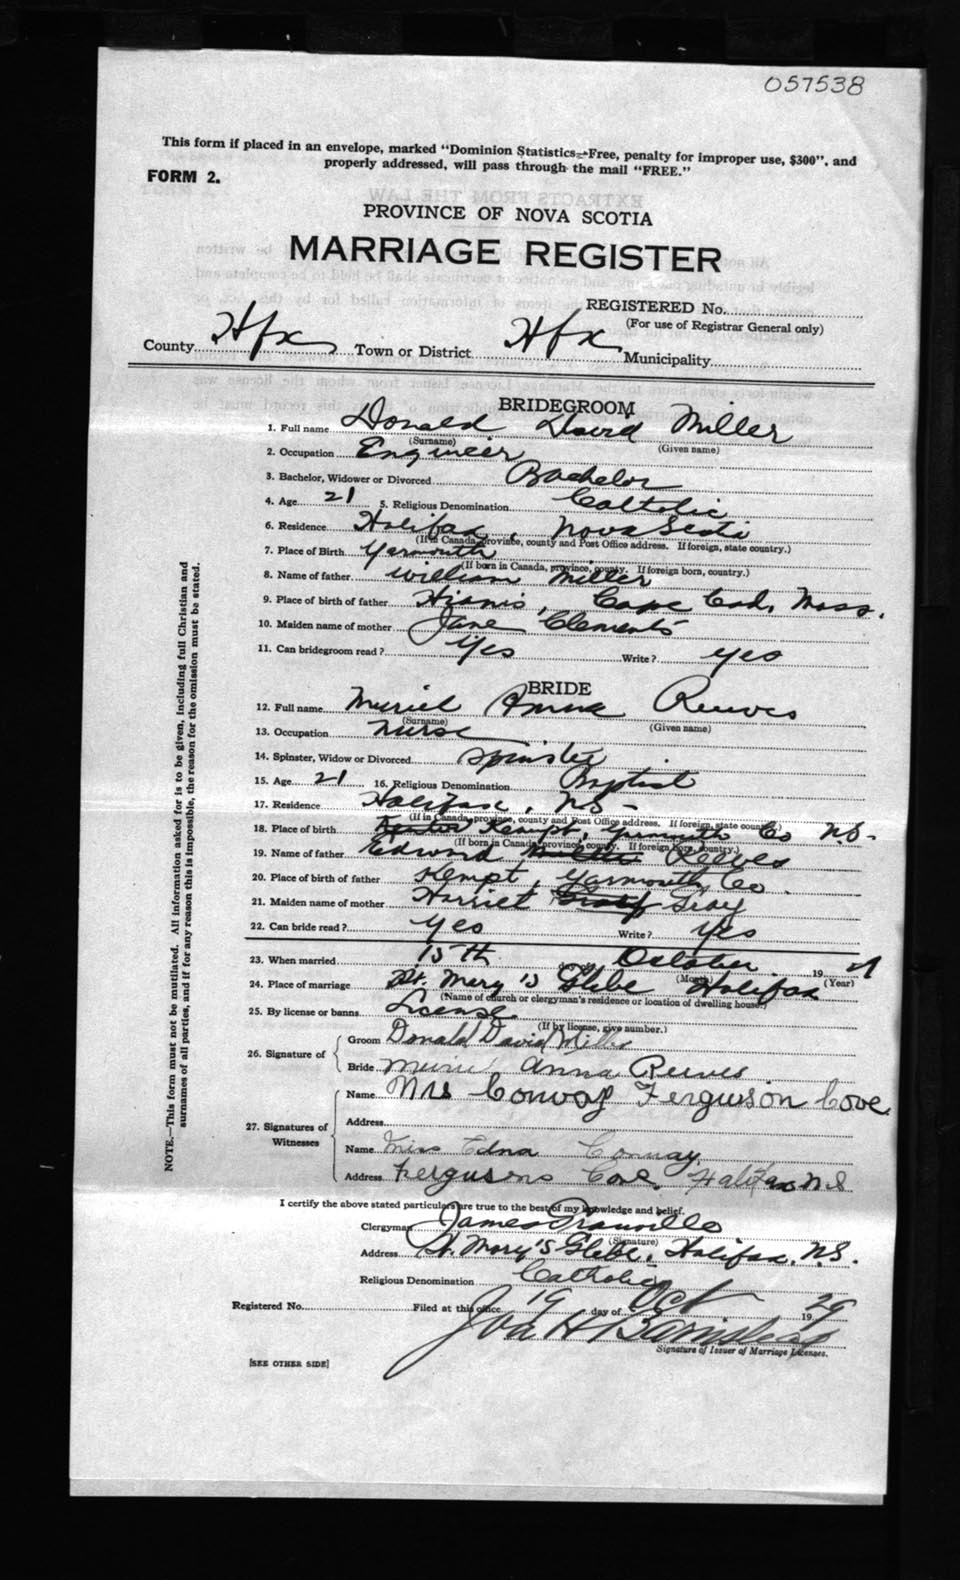 057538
This form if placed in an envelope, marked "Dominion Statistics—Free, penalty for improper use, $300", and
properly addressed, will pass through the mail "FREE."
FORM 2.
PROVINCE OF NOVA SCOTIA
MARRIAGE REGISTER
REGISTERED No.
(For use of Registrar General only)
County Hfx Town or District Hfx Municipality
BRIDEGROOM
1. Full name Donald David Miller
(Surname) (Given name)
2. Occupation Engineer
3. Bachelor, Widower or Divorced Bachelor
4. Age 21 5. Religious Denomination Catholic
6. Residence Halifax, Nova Scotia
(If in Canada, province, county and Post Office address. If foreign, state country.)
7. Place of Birth Yarmouth
(If born in Canada, province, county. If foreign born, country.)
8. Name of father William Miller
9. Place of birth of father Hianis, Cape Cod, Mass.
10. Maiden name of mother Jane Clements
11. Can bridegroom read? Yes Write? yes
BRIDE
12. Full name Muriel Anna Reeves
(Surname) (Given name)
13. Occupation Nurse
14. Spinster, Widow or Divorced Spinster
15. Age 21 16. Religious Denomination Baptist
17. Residence Halifax, NS -
(If in Canada, province, county and Post Office address. If foreign, state country.)
18. Place of birth Kempt, Yarmouth Co N.S-
(If born in Canada, province, county. If foreign born, country.)
19. Name of father Edward Reeves
20. Place of birth of father Kempt, Yarmouth Co.
21. Maiden name of mother Harriet Gray
22. Can bride read? Yes Write? Yes
23. When married 15th October 19
(Month) (Year)
24. Place of marriage St. Mary's Glebe Halifax
(Name of church or clergyman's residence or location of dwelling house)
25. By license or banns License
(If by license, give number.)
26. Signature of Groom Donald David Miller
Bride Muriel Anna Reeves
27. Signatures of Witnesses
Name Mrs Conway Ferguson Cove
Address
Name Miss Edna Conway
Address Fergusons Cove. Halifax N S
I certify the above stated particulars are true to the best of my knowledge and belief.
Clergyman James Granville
(Signature)
Address St. Mary's Glebe, Halifax, N.S.
Religious Denomination Catholic
Registered No. Filed at this office 19 day of Oct 1929
Signature of Issuer of Marriage Licenses.
[SEE OTHER SIDE]
NOTE.—This form must not be mutilated. All information asked for is to be given, including full Christian and
surnames of all parties, and if for any reason this is impossible, the reason for the omission must be stated.